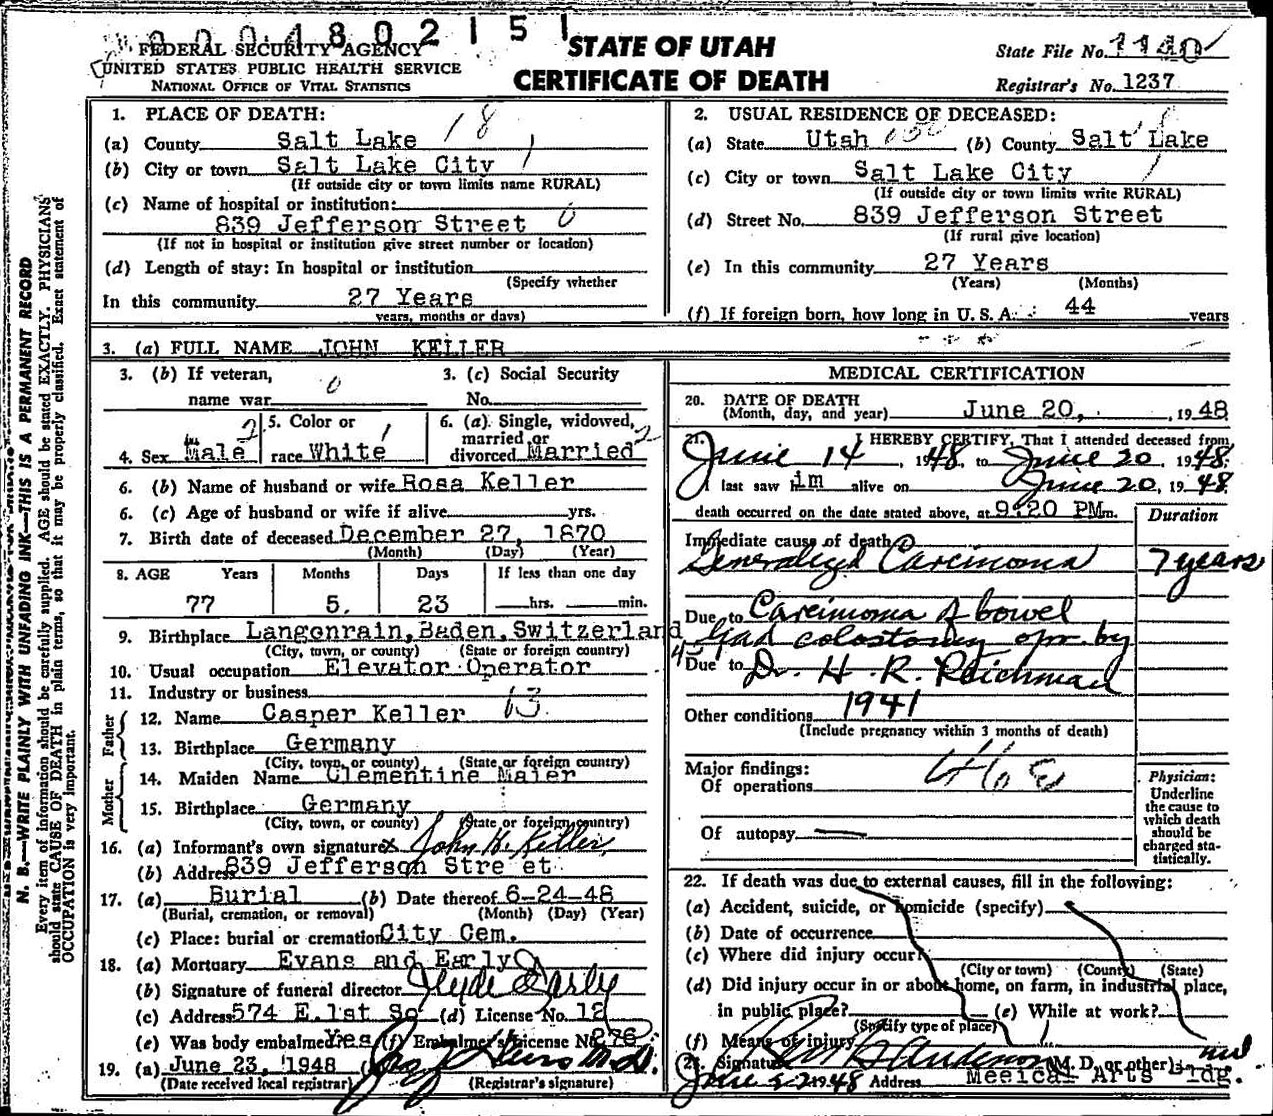 0004802151
FEDERAL SECURITY AGENCY
UNITED STATES PUBLIC HEALTH SERVICE
NATIONAL OFFICE OF VITAL STATISTICS
STATE OF UTAH
CERTIFICATE OF DEATH
State File No. 1140
Registrar's No. 1237
N. B.—WRITE PLAINLY WITH UNFADING INK—THIS IS A PERMANENT RECORD
Every item of information should be carefully supplied. AGE should be stated EXACTLY. PHYSICIANS
should state CAUSE OF DEATH in plain terms, so that it may be properly classified. Exact statement of
OCCUPATION is very important.
1. PLACE OF DEATH:
(a) County Salt Lake 18
(b) City or town Salt Lake City 1
(If outside city or town limits name RURAL)
(c) Name of hospital or institution:
839 Jefferson Street 0
(If not in hospital or institution give street number or location)
(d) Length of stay: In hospital or institution
(Specify whether
In this community 27 Years
years, months or days)
2. USUAL RESIDENCE OF DECEASED:
(a) State Utah (b) County Salt Lake
(c) City or town Salt Lake City
(If outside city or town limits write RURAL)
(d) Street No. 839 Jefferson Street
(If rural give location)
(e) In this community 27 Years
(Years) (Months)
(f) If foreign born, how long in U. S. A. 44 years
3. (a) FULL NAME JOHN KELLER
3. (b) If veteran, name war 0
3. (c) Social Security No.
4. Sex Male 2
5. Color or race White 1
6. (a) Single, widowed, married or divorced Married 2
6. (b) Name of husband or wife Rosa Keller
6. (c) Age of husband or wife if alive yrs.
7. Birth date of deceased December 27, 1870
(Month) (Day) (Year)
8. AGE Years Months Days If less than one day
77 5. 23 hrs. min.
9. Birthplace Langenrain, Baden, Switzerland
(City, town, or county) (State or foreign country)
10. Usual occupation Elevator Operator
11. Industry or business
Father
12. Name Casper Keller 13
13. Birthplace Germany
(City, town, or county) (State or foreign country)
Mother
14. Maiden Name Clementine Maier
15. Birthplace Germany
(City, town, or county) (State or foreign country)
16. (a) Informant's own signature x John H. Keller
(b) Address 839 Jefferson Stre et
17. (a) Burial (b) Date thereof 6-24-48
(Burial, cremation, or removal) (Month) (Day) (Year)
(c) Place: burial or cremation City Cem.
18. (a) Mortuary Evans and Early
(b) Signature of funeral director Clyde Early
(c) Address 574 E. 1st So (d) License No. 12
(e) Was body embalmed? Yes (f) Embalmer's License No. 276
19. (a) June 23, 1948
(Date received local registrar) (Registrar's signature)
MEDICAL CERTIFICATION
20. DATE OF DEATH
(Month, day, and year) June 20, , 1948
21. I HEREBY CERTIFY, That I attended deceased from
June 14, 1948, to June 20, 1948.
I last saw him alive on June 20, 1948.
death occurred on the date stated above, at 9:20 PM m.
Duration
Immediate cause of death
Generalized Carcinoma 7 years
Due to Carcinoma of bowel
Had colostomy opr. by
Due to Dr. H. R. Reichman
Other conditions 1941
(Include pregnancy within 3 months of death)
Major findings:
Of operations
Of autopsy
Physician:
Underline
the cause to
which death
should be
charged sta-
tistically.
22. If death was due to external causes, fill in the following:
(a) Accident, suicide, or homicide (specify)
(b) Date of occurrence
(c) Where did injury occur?
(City or town) (County) (State)
(d) Did injury occur in or about home, on farm, in industrial place,
in public place? (e) While at work?
(Specify type of place)
(f) Means of injury
23. Signature Anderson (M. D. or other) md
June 22 1948 Address Meeical Arts Bldg.